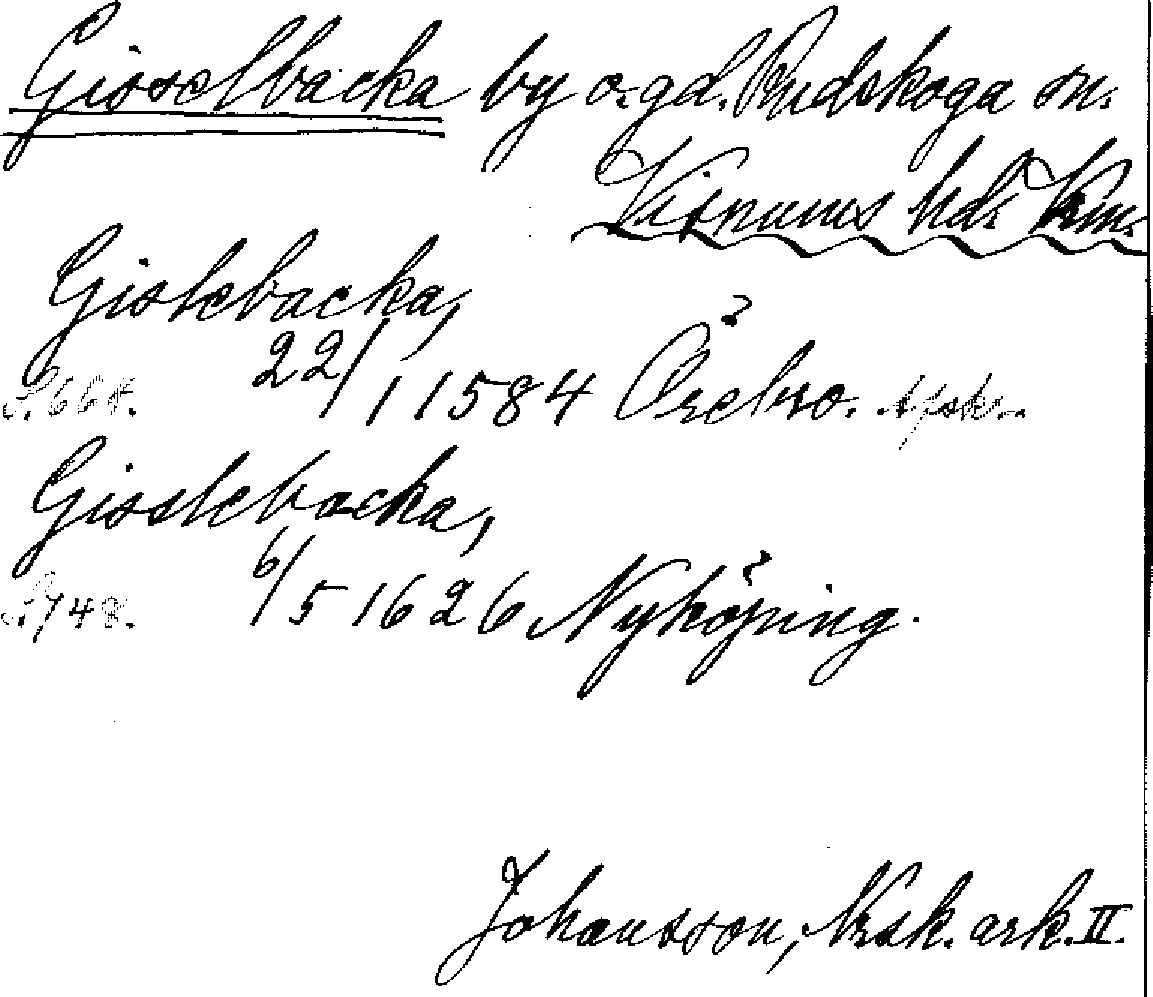 Gisselbacka by o. gd. Rudskoga sn.
Visnums hd. Vrm.
Gislebacka,
S. 668. 22/11 1584 Örebro. Afskr.
Gisslebacka,
S. 748. 6/5 1626 Nyköping.
Johansson, Nrsk. ark. II.